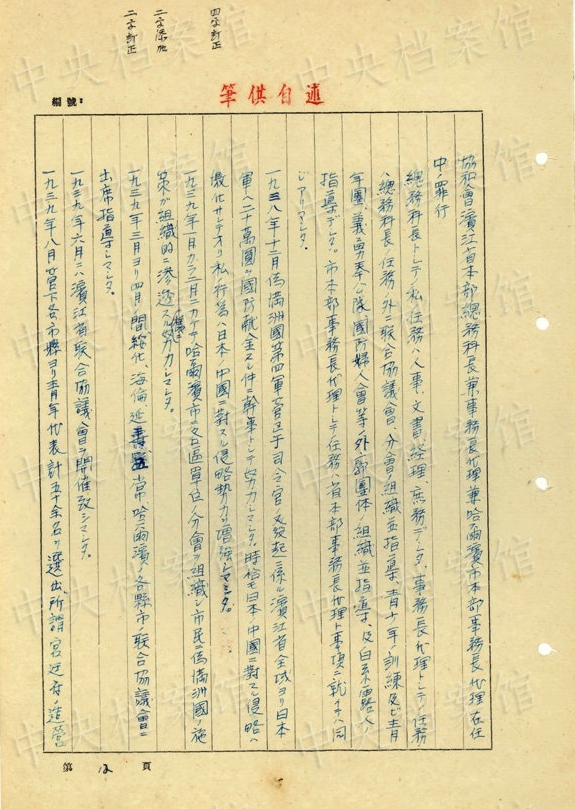 四字訂正
二字添加
二字訂正
編號:
筆供自述
協和會濱江省本部總務科長兼事務長代理兼哈爾濱市本部事務長代理在任
中ノ罪行
總務科長トシテノ私ノ任務ハ人事、文書、經理、庶務デシタ、事務長代理トシテノ任務
ハ總務科長ノ任務ノ外ニ聯合協議會、分會ノ組織並指導、青少年ノ訓練及ビ青
年團、義勇奉公隊國防婦人會等ノ外廓團体ノ組織並指導、及白系露人ノ
指導デシタ。市本部事務長代理トシテノ任務ハ省本部事務長代理ト事項ニ就イテハ同
ジデアリマシタ。
一九三八年十二月偽滿洲國第四軍管區于司令官ノ發起ニ係ル濱江省全域ヨリ日本
軍ヘ二十萬圓ノ國防獻金スル件ノ幹事トシテ努力シマシタ。時恰モ日本ノ中國ニ對スル侵略ハ
激化サレテオリ私ノ行為ハ日本ノ中國ニ對スル侵略勢力ヲ增強シマシタ。
一九三九年一月カラ二月ニカケテ哈爾濱市ノ各區單位ノ分會ヲ組織シ市民ニ偽滿洲國ノ施
策ガ組織的ニ滲透スル樣ニ努力シマシタ。
一九三九年三月ヨリ四月ノ間綏化、海倫、延壽、五常、哈爾濱ノ各縣市ノ聯合協議會ニ
出席指導シマシタ。
一九三九年六月ニハ濱江省聯合協議會ヲ開催致シマシタ。
一九三九年八月ニ管下各市縣ヨリ青年代表計五十余名ヲ選出、所謂宮廷府ノ造營
第 12 頁
中央档案馆